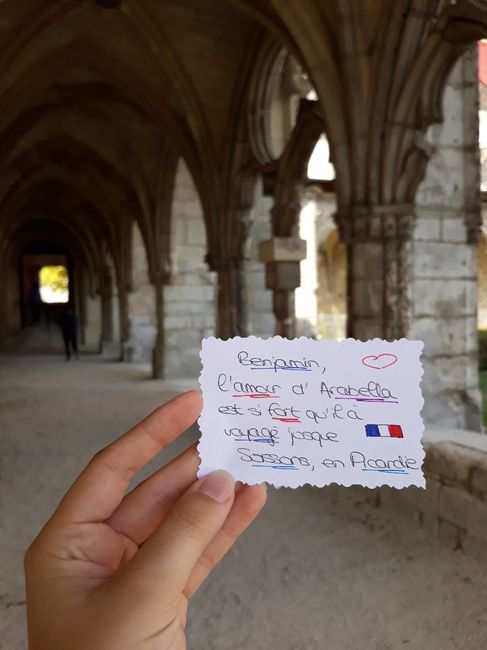 Benjamin,
l'amour d'Arabella
est si fort qu'il à
voyagé jusque
Soissons, en Picardie